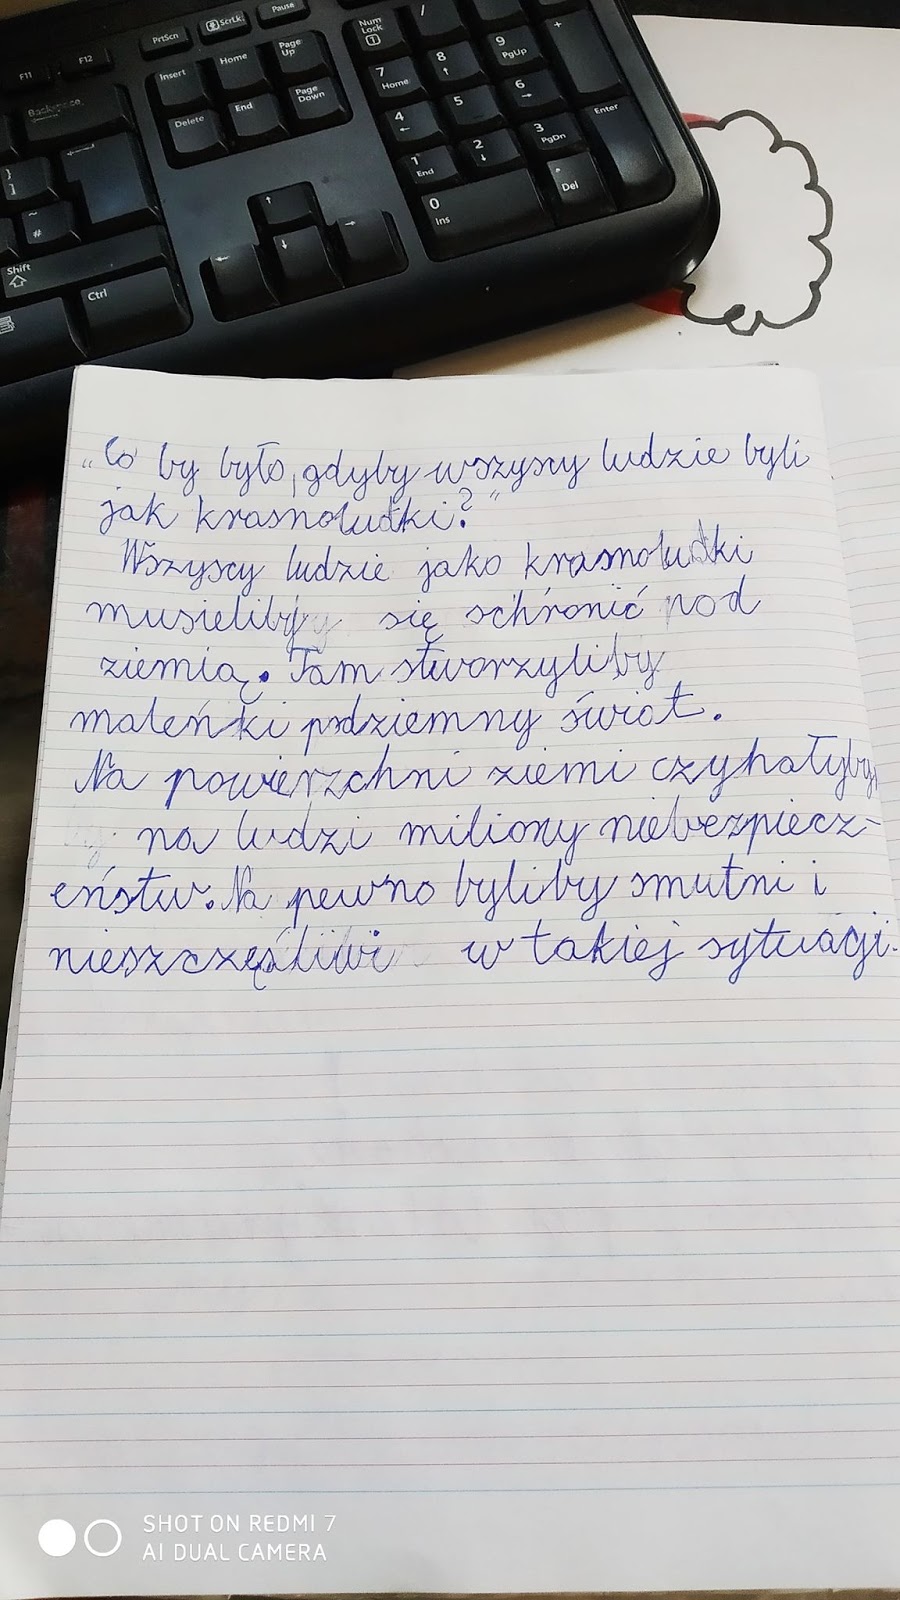 PrtScn
ScrLk
Pause
F11
F12
Insert
Home
Page Up
Delete
End
Page Down
Backspace
Shift
Ctrl
Num Lock
/
+
7 Home
8
9 PgUp
4
5
6
Enter
1 End
2
3 PgDn
0 Ins
. Del
} ]
~ #
„Co by było, gdyby wszyscy ludzie byli
jak krasnoludki?”
Wszyscy ludzie jako krasnoludki
musieliby się schronić pod
ziemią. Tam stworzyliby
maleńki podziemny świat.
Na powierzchni ziemi czyhałyby
na ludzi miliony niebezpiecz-
eństw. Na pewno byliby smutni i
nieszczęśliwi w takiej sytuacji.
SHOT ON REDMI 7
AI DUAL CAMERA